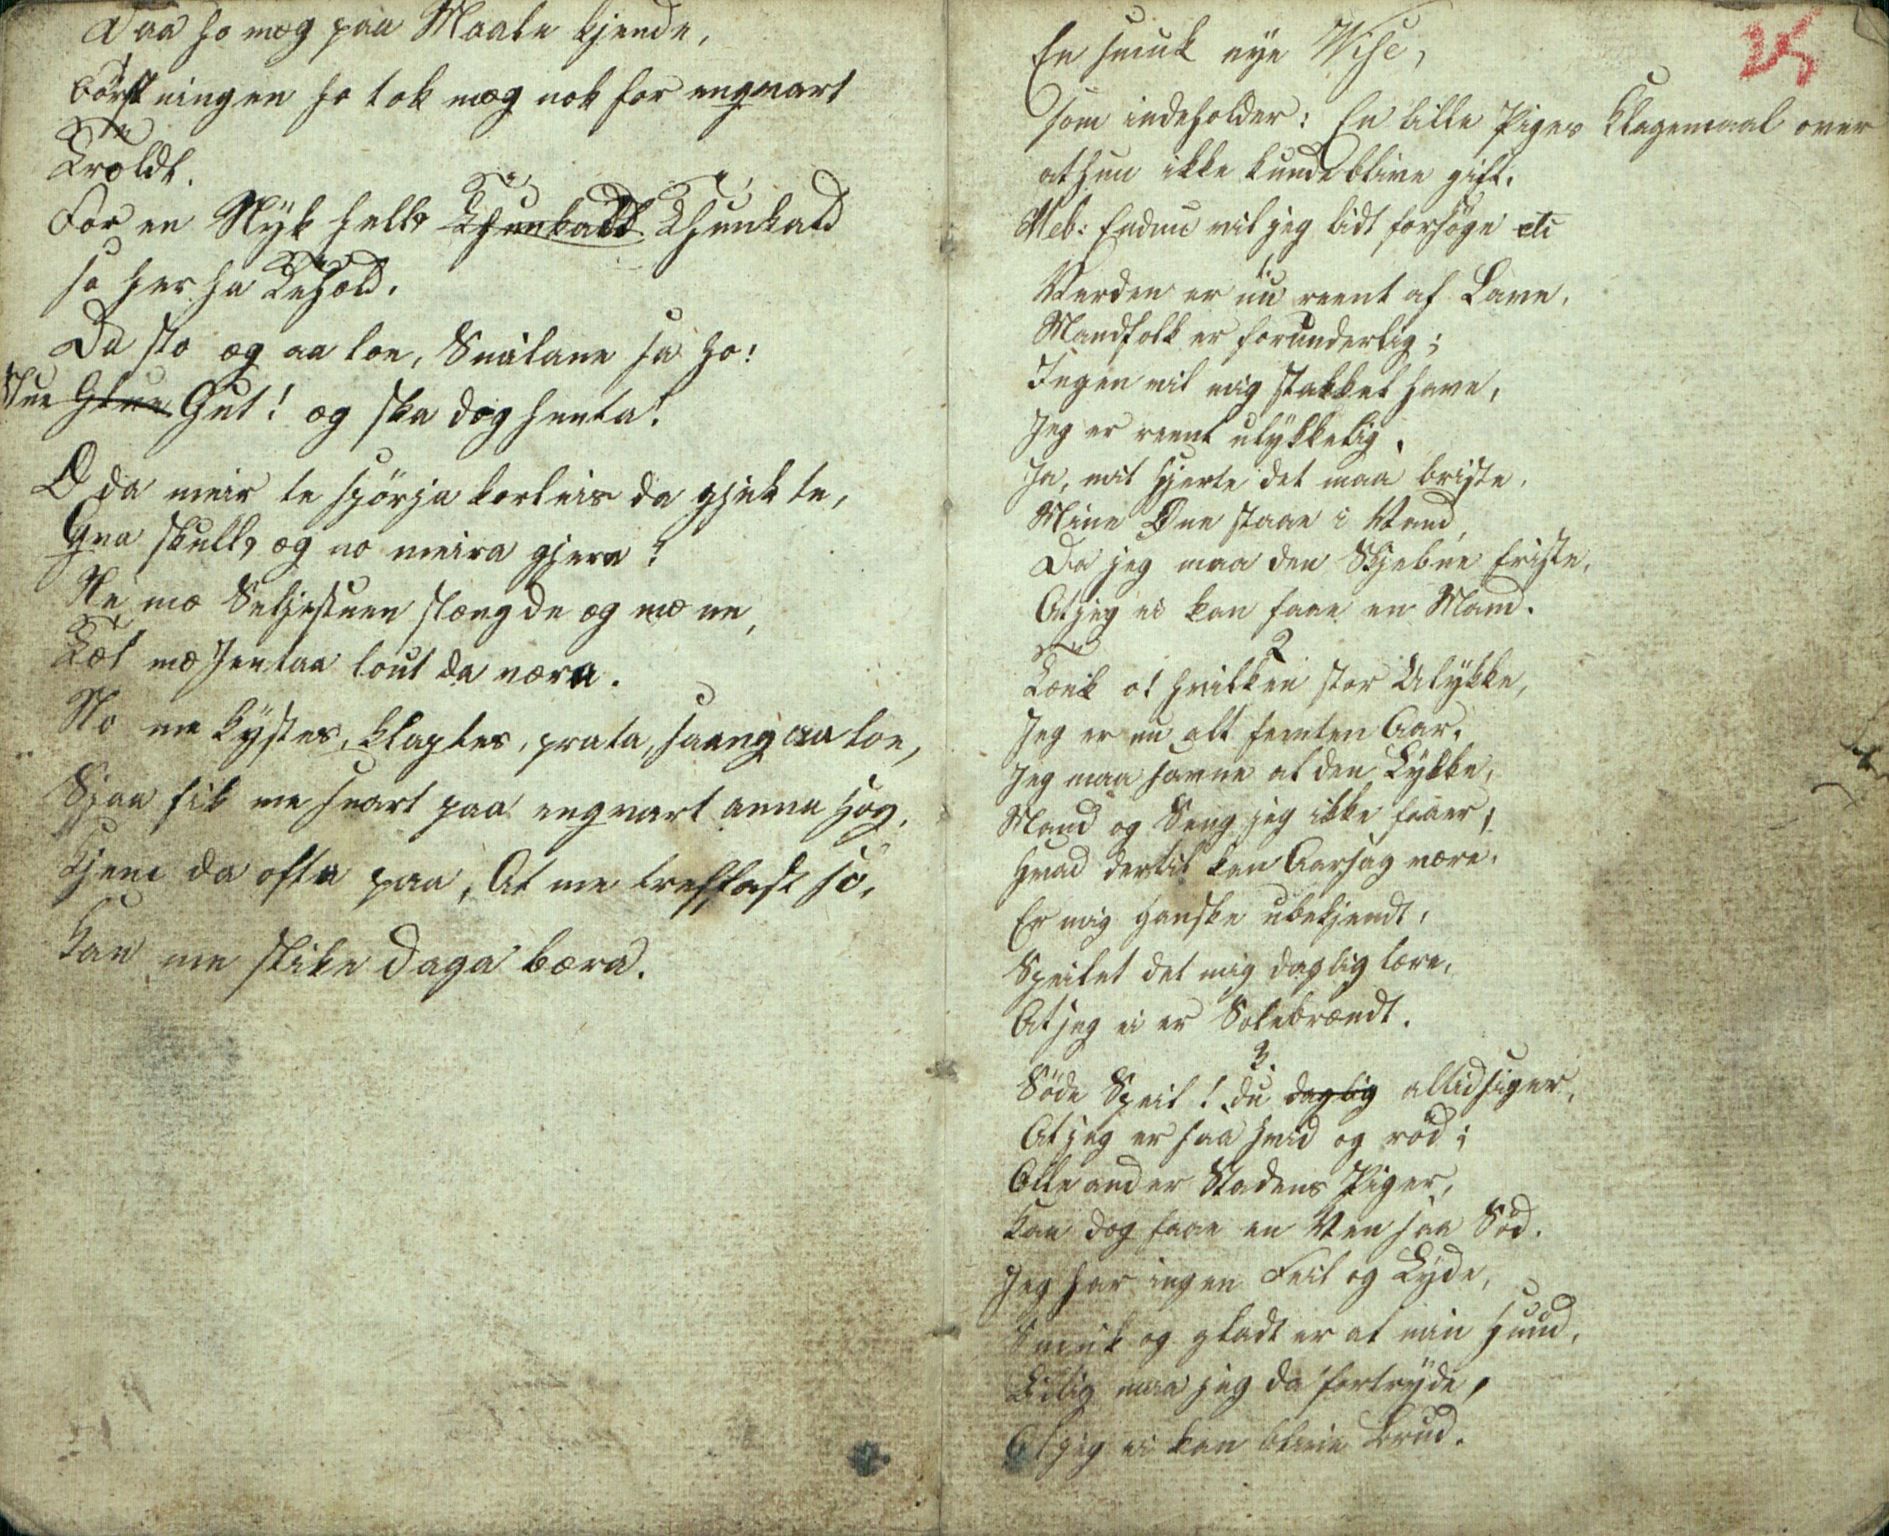 Daa ho mæg paa Maale kjende,
börstningen ho tok mæg nok for engvart
Troldt.
For en Nyk hell Thunkald Thunkald
so her ha Tehold.
Da sto æg aa loe, Snålane sa ho:
Stue Stue Gut! og ska dog henta!
O da meir te spörja korleis da gjek te,
Gva skull æg no meira gjera?
Ne mæ Seljestuen slængde æg mæ ne,
Tæt mæ Jentaa lout da væra.
No me kystes, klaptes, prata, saang aa loe,
Sjaa fik me snart paa engvart anna Hog,
Kjem da ofta paa, At me treffast so,
Kan me slike Daga bæra.
25
En smuk nye Vise,
som indeholder: En lille Piges Klagemaal over
at hun ikke kunde blive gift.
Mel: Endnu vil jeg lidt forsöge etc
1.
Verden er nu reent af Lave,
Mandfolk er forunderlig;
Ingen vil mig stakkel have,
Jeg er reent ulykkelig.
Ja, mit Hjerte det maa briste,
Mine Øne staae i Vand,
Da jeg maa den Skjebne friste,
At jeg ei kan faae en Mand.
2
Tænk ot hvilken stor Ulykke,
Jeg er nu alt femten Aar,
Jeg maa savne al den Lykke,
Mand og Seng jeg ikke faaer;
Hvad dertil kan Aarsag være,
Er mig ganske ubekjendt,
Speilet det mig daglig lære,
At jeg ei er Solebrændt.
3.
Söde Speil! du daglig altid siger,
At jeg er saa hvid og röd;
Alle ander Stadens Piger,
Kan dog faae en Ven saa Söd.
Jeg har ingen Feil og Lyde,
Smuk og gladt er al min Hund,
Billig maa jeg da fortryde,
At jeg ei kan blive Brud.